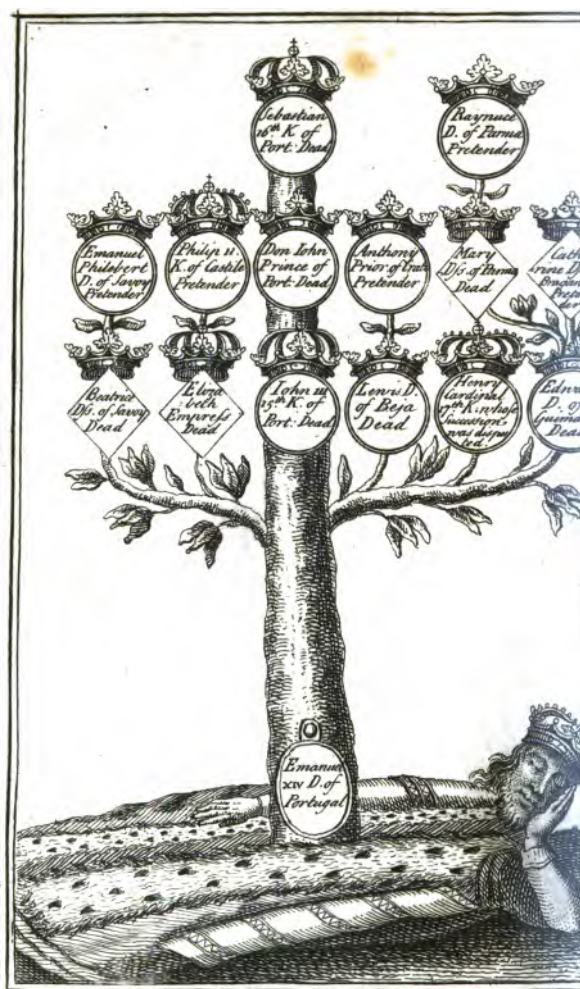 Sebastian
16th K of
Port: Dead
Raynuce
D. of Parma
Pretender
Emanuel
Philebert
D. of Savoy
Pretender
Philip II.
K. of Castile
Pretender
Don Iohn
Prince of
Port: Dead
Anthony
Prior: of Crato
Pretender
Mary
Dſs. of Parma
Dead
Cath
rine
Beatrice
Dſs. of Savoy
Dead
Eliza
beth
Empreſs
Dead
Iohn III
15th K. of
Port: Dead
Lewis D.
of Beja
Dead
Henry
Cardinal
17th K. whose
Succession
was dispu
ted.
D. of
Emanuel
XIV D. of
Portugal